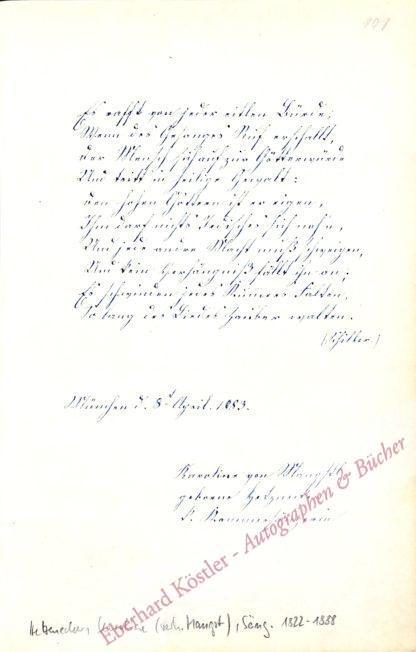 101
Es rafft von jeder eitlen Bürde,
Wenn des Gesanges Ruf erschallt,
der Mensch sich auf zur Götterwürde
Und tritt in heilige Gewalt:
den hohen Göttern ist er eigen,
Ihm darf nichts Irdisches sich nah'n,
Und jede andre Macht muß schweigen,
Und kein Verhängniß fällt ihn an;
Es schwinden jedes Kummers Falten,
So lang des Liedes Zauber walten.
(Schiller.)
München d. 8t April. 1883.
Karoline von Mangstl
geborne
K.
Eberhard Köstler - Autographen & Bücher
Hetzenecker, Karoline (verh. Mangstl), Säng. 1822-1888